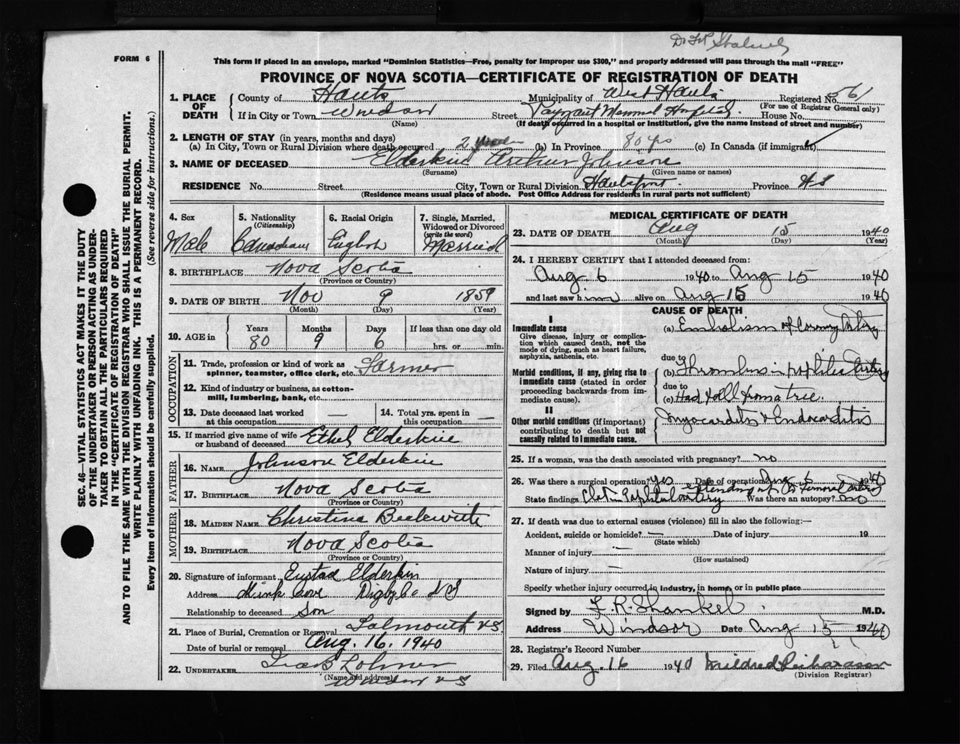 FORM 6
This form if placed in an envelope, marked "Dominion Statistics—Free, penalty for improper use $300," and properly addressed will pass through the mail "FREE"
PROVINCE OF NOVA SCOTIA—CERTIFICATE OF REGISTRATION OF DEATH
1. PLACE OF DEATH County of Hants Municipality of West Hants Registered No. 561
(For use of Registrar General only)
If in City or Town Windsor Street Payzant Memorial Hospital House No.
(Name) (If death occurred in a hospital or institution, give the name instead of street and number)
2. LENGTH OF STAY (in years, months and days)
(a) In City, Town or Rural Division where death occurred 2 (b) In Province 80 yrs (c) In Canada (if immigrant)
3. NAME OF DECEASED Elderkin Arthur Johnson
(Surname) (Given name or names)
RESIDENCE No. Street City, Town or Rural Division Hantsport Province NS
(Residence means usual place of abode. Post Office Address for residents in rural parts not sufficient)
4. Sex Male
5. Nationality (Citizenship) Canadian
6. Racial Origin English
7. Single, Married, Widowed or Divorced (write the word) Married
8. BIRTHPLACE Nova Scotia
(Province or Country)
9. DATE OF BIRTH Nov 9 1859
(Month) (Day) (Year)
10. AGE in Years Months Days If less than one day old
80 9 6 hrs. or min.
OCCUPATION
11. Trade, profession or kind of work as spinner, teamster, office clerk, etc. Farmer
12. Kind of industry or business, as cotton-mill, lumbering, bank, etc.
13. Date deceased last worked at this occupation
14. Total yrs. spent in this occupation
15. If married give name of wife or husband of deceased Ethel Elderkin
FATHER
16. NAME Johnson Elderkin
17. BIRTHPLACE Nova Scotia
(Province or Country)
MOTHER
18. MAIDEN NAME Christina Beckwith
19. BIRTHPLACE Nova Scotia
(Province or Country)
20. Signature of informant Elderkin
Address Mink Cove Digby Co NS
Relationship to deceased Son
21. Place of Burial, Cremation or Removal Falmouth NS
Date of burial or removal Aug. 16, 1940
22. UNDERTAKER
(Name and address) Windsor NS
MEDICAL CERTIFICATE OF DEATH
23. DATE OF DEATH Aug 15 1940
(Month) (Day) (Year)
24. I HEREBY CERTIFY that I attended deceased from:
Aug. 6 1940 to Aug 15 1940
and last saw him alive on Aug 15 1940
CAUSE OF DEATH
I
Immediate cause
Give disease, injury or complication which caused death, not the mode of dying, such as heart failure, asphyxia, asthenia, etc.
(a) Embolism of Coronary Artery
due to
Morbid conditions, if any, giving rise to immediate cause (stated in order proceeding backwards from immediate cause).
(b) Thrombus in popliteal artery
due to
(c) Had fall from a tree.
II
Other morbid conditions (if important) contributing to death but not causally related to immediate cause.
Myocarditis & Endocarditis
25. If a woman, was the death associated with pregnancy? no
26. Was there a surgical operation? yes Date of operation 1940
State findings Clot in Popliteal artery extending Femoral artery Was there an autopsy? no
27. If death was due to external causes (violence) fill in also the following:—
Accident, suicide or homicide?— Date of injury 19
(State which)
Manner of injury —
(How sustained)
Nature of injury —
Specify whether injury occurred in Industry, in home, or in public place
Signed by F. R. Shankel M.D.
Address Windsor Date Aug 15 1940
28. Registrar's Record Number
29. Filed Aug. 16 1940 Mildred Richardson
(Division Registrar)
SEC. 46—VITAL STATISTICS ACT MAKES IT THE DUTY
OF THE UNDERTAKER OR PERSON ACTING AS UNDER-
TAKER TO OBTAIN ALL THE PARTICULARS REQUIRED
IN THE "CERTIFICATE OF REGISTRATION OF DEATH"
AND TO FILE THE SAME WITH THE DIVISION REGISTRAR WHO SHALL ISSUE THE BURIAL PERMIT.
WRITE PLAINLY WITH UNFADING INK. THIS IS A PERMANENT RECORD.
Every item of information should be carefully supplied. (See reverse side for instructions.)